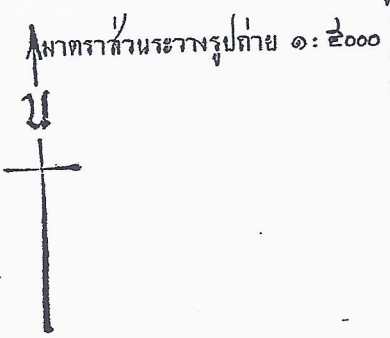 มาตราส่วนระวางรูปถ่าย ๑: ๕๐๐๐
น